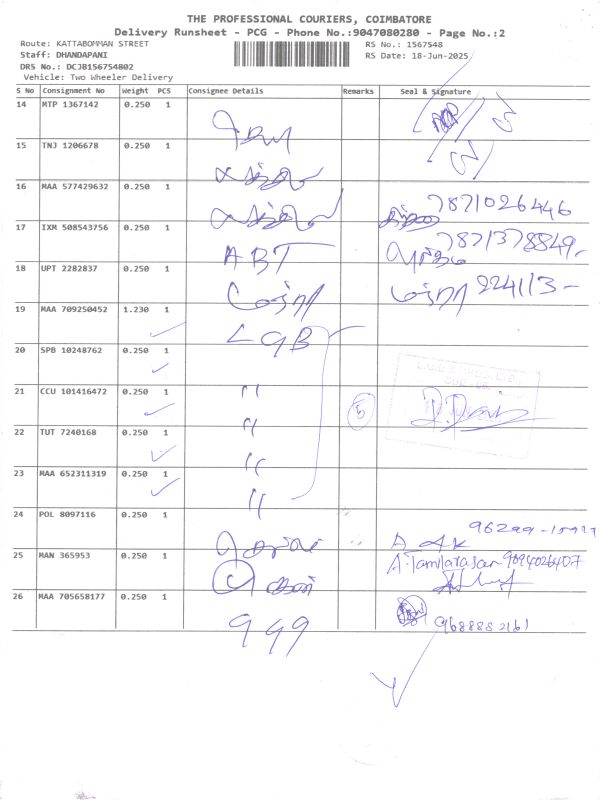 THE PROFESSIONAL COURIERS, COIMBATORE
Delivery Runsheet - PCG - Phone No.:9047080280 - Page No.:2
Route: KATTABOMMAN STREET
RS No.: 1567548
Staff: DHANDAPANI
RS Date: 18-Jun-2025
DRS No.: DCJB156754802
Vehicle: Two Wheeler Delivery
S No Consignment No Weight PCS Consignee Details Remarks Seal & Signature
14 MTP 1367142 0.250 1
15 TNJ 1206678 0.250 1
16 MAA 577429632 0.250 1 7871026446
17 IXM 508543756 0.250 1 ABT 7871378849
18 UPT 2282837 0.250 1 224113
19 MAA 709250452 1.230 1 LGB
20 SPB 10248762 0.250 1
21 CCU 101416472 0.250 1 " 5
22 TUT 7240168 0.250 1 "
23 MAA 652311319 0.250 1 "
"
24 POL 8097116 0.250 1
25 MAN 365953 0.250 1 A.Tamilarasan 9894026407
26 MAA 705658177 0.250 1 999 9688882161